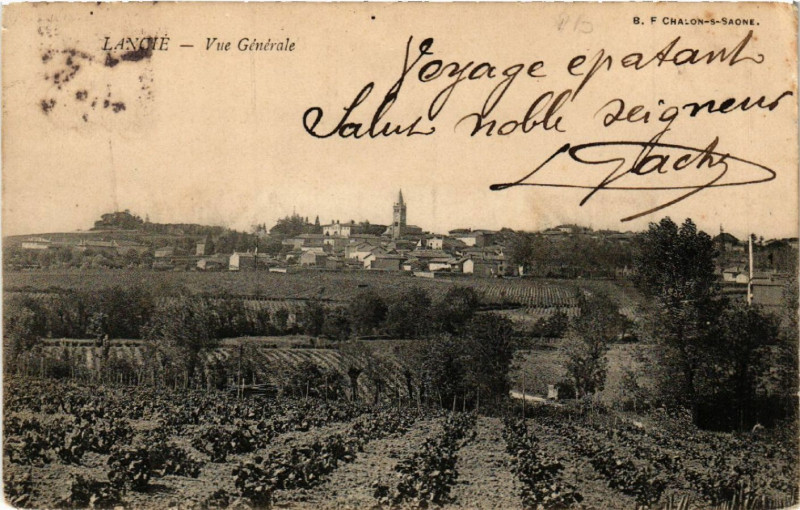 B. F CHALON-S-SAONE.
LANCIÉ — Vue Générale
Voyage épatant
Salut noble seigneur